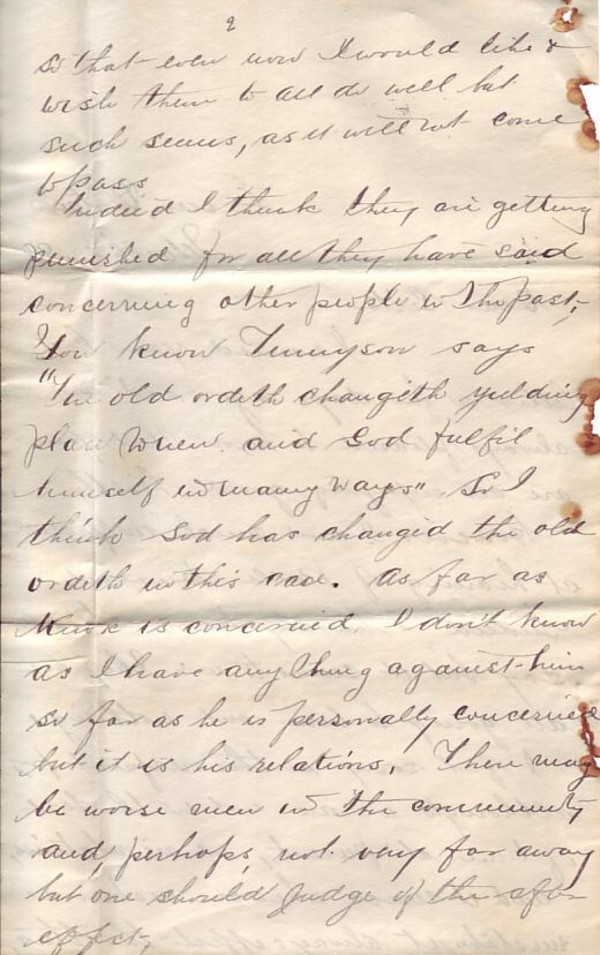 2
so that even now I would like &
wish them to all do well but
such seems, as it will not come
to pass
Indeed I think they are getting
punished for all they have said
concerning other people in the past,
You know Tennyson says
"The old ordeth changeth yielding
place when and God fulfil
himself in many ways" So I
think God has changed the old
ordeth in this case. As far as
is concerned, I don't know
as I have any thing against him
so far as he is personally concerned
but it is his relations. There may
be worse men in the community
and, perhaps, not very far away
but one should judge of the
effect,